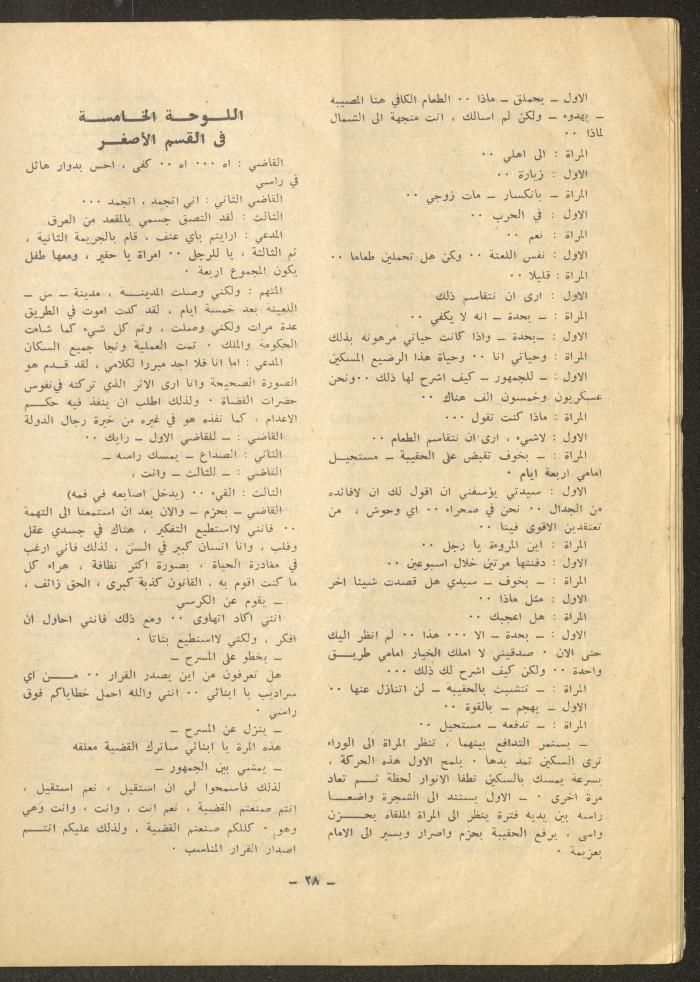 الاول ــ يحملق ــ ماذا ٠٠ الطعام الكافي هنا المصيبه
ــ بهدوء ــ ولكن لم اسالك ، انت متجهة الى الشمال
لماذا ٠٠
المراة : الى اهلي ٠٠
الاول : زيارة ٠٠
المراة ــ بانكسار ــ مات زوجي ٠٠
الاول : في الحرب ٠٠
المراة : نعم ٠٠
الاول : نفس اللعنة ٠٠ ولكن هل تحملين طعاما ٠٠
المراة : قليلا ٠٠
الاول : ارى ان نتقاسم ذلك
المراة : ــ بحدة ــ انه لا يكفي ٠٠
الاول : ــبحدة ــ واذا كانت حياتي مرهونه بذلك
المراة : وحياتي انا ٠٠ وحياة هذا الرضيع المسكين
الاول : ــ للجمهور ــ كيف اشرح لها ذلك ٠٠ونحن
عسكريون وخمسون الف هناك ٠٠
المراة : ماذا كنت تقول ٠٠٠
الاول : لاشيء ، ارى ان نتقاسم الطعام ٠٠
المراة : ــ بخوف تقبض على الحقيبة ــ مستحيل
امامي اربعة ايام ٠
الاول : سيدتي يؤسفني ان اقول لك ان لافائده
من الجدال ٠٠ نحن في صحراء ٠٠ اي وحوش ، من
تعتقدين الاقوى فينا ٠٠
المراة : اين المروءة يا رجل ٠٠
الاول : دفنتها مرتين خلال اسبوعين ٠٠
المراة : ــ بخوف ــ سيدي هل قصدت شيئا اخر
الاول : مثل ماذا ٠٠
المراة : هل اعجبك ٠٠
الاول : ــ بحدة ــ الا ٠٠٠ هذا ٠٠ لم انظر اليك
حتى الان ٠ صدقيني لا املك الخيار امامي طريق
واحدة ٠٠ ولكن كيف اشرح لك ذلك ٠٠٠
المراة : ــ تتشبث بالحقيبة ــ لن اتنازل عنها ٠٠
الاول ــ يهجم ــ بالقوة ٠٠
المراة : ــ تدفعه ــ مستحيل ٠٠
ــ يستمر التدافع بينهما ، تنظر المراة الى الوراء
ترى السكين تمد يدها ٠ يلمح الاول هذه الحركة ،
بسرعة يمسك بالسكين تطفا الانوار لحظة ثم تعاد
مرة اخرى ٠ ــ الاول يستند الى الشجرة واضعا
راسه بين يديه فترة ينظر الى المراة الملقاه بحزن
واسى ، يرفع الحقيبة بحزم واصرار ويسير الى الامام
بعزيمة ٠
اللوحة الخامسة
في القسم الأصفر
القاضي : اه ٠٠٠ اه ٠٠ كفى ، احس بدوار هائل
في راسي
القاضي الثاني : اني اتجمد ، اتجمد ٠٠٠
الثالث : لقد التصق جسمي بالمقعد من العرق
المدعي : ارايتم باي عنف ، قام بالجريمة الثانية ،
ثم الثالثة ، يا للرجل ٠٠ امراة يا حقير ، ومعها طفل
يكون المجموع اربعة ٠
المتهم : ولكني وصلت المدينه ، مدينة ــ س ــ
اللعينة بعد خمسة ايام ، لقد كدت اموت في الطريق
عدة مرات ولكني وصلت ، وتم كل شيء كما شاءت
الحكومة والملك ٠ تمت العملية ونجا جميع السكان
المدعي : اما انا فلا اجد مبررا لكلامي ، لقد قدم هو
الصورة الصحيحة وانا ارى الاثر الذي تركته فينفوس
حضرات القضاة ٠ ولذلك اطلب ان ينفذ فيه حكم
الاعدام ، كما نفذه هو في غيره من خيرة رجال الدولة
القاضي : ــ للقاضي الاول ــ رايك ٠٠
الثاني : الصداع ــ يمسك راسه ــ
القاضي : ــ للثالث ــ وانت ،
الثالث : القيء ٠٠ (يدخل اصابعه في فمه)
القاضي ــ بحزم ــ والان بعد ان استمعنا الى التهمة
٠٠ فانني لااستطيع التفكير ، هناك في جسدي عقل
وقلب ، وانا انسان كبير في السن ، لذلك فاني ارغب
في مغادرة الحياة ، بصورة اكثر نظافة ، هراء كل
ما كنت اقوم به ، القانون كذبة كبرى ، الحق زائف ،
ــ يقوم عن الكرسي
انني اكاد اتهاوى ٠٠ ومع ذلك فانني احاول ان
افكر ، ولكني لااستطيع بتاتا ٠
ــ يخطو على المسرح ــ
هل تعرفون من اين يصدر القرار ٠٠ من اي
سراديب يا ابنائي ٠٠ انني والله احمل خطاياكم فوق
راسي ٠
ــ ينزل عن المسرح ــ
هذه المرة يا ابنائي ساترك القضية معلقه
ــ يمشي بين الجمهور ــ
لذلك فاسمحوا لي ان استقيل ، نعم استقيل ،
انتم صنعتم القضية ، نعم انت ، وانت ، وانت وهي
وهو ٠ كللكم صنعتم القضية ، ولذلك عليكم انتم
اصدار القرار المناسب ٠
ــ ٣٨ ــ